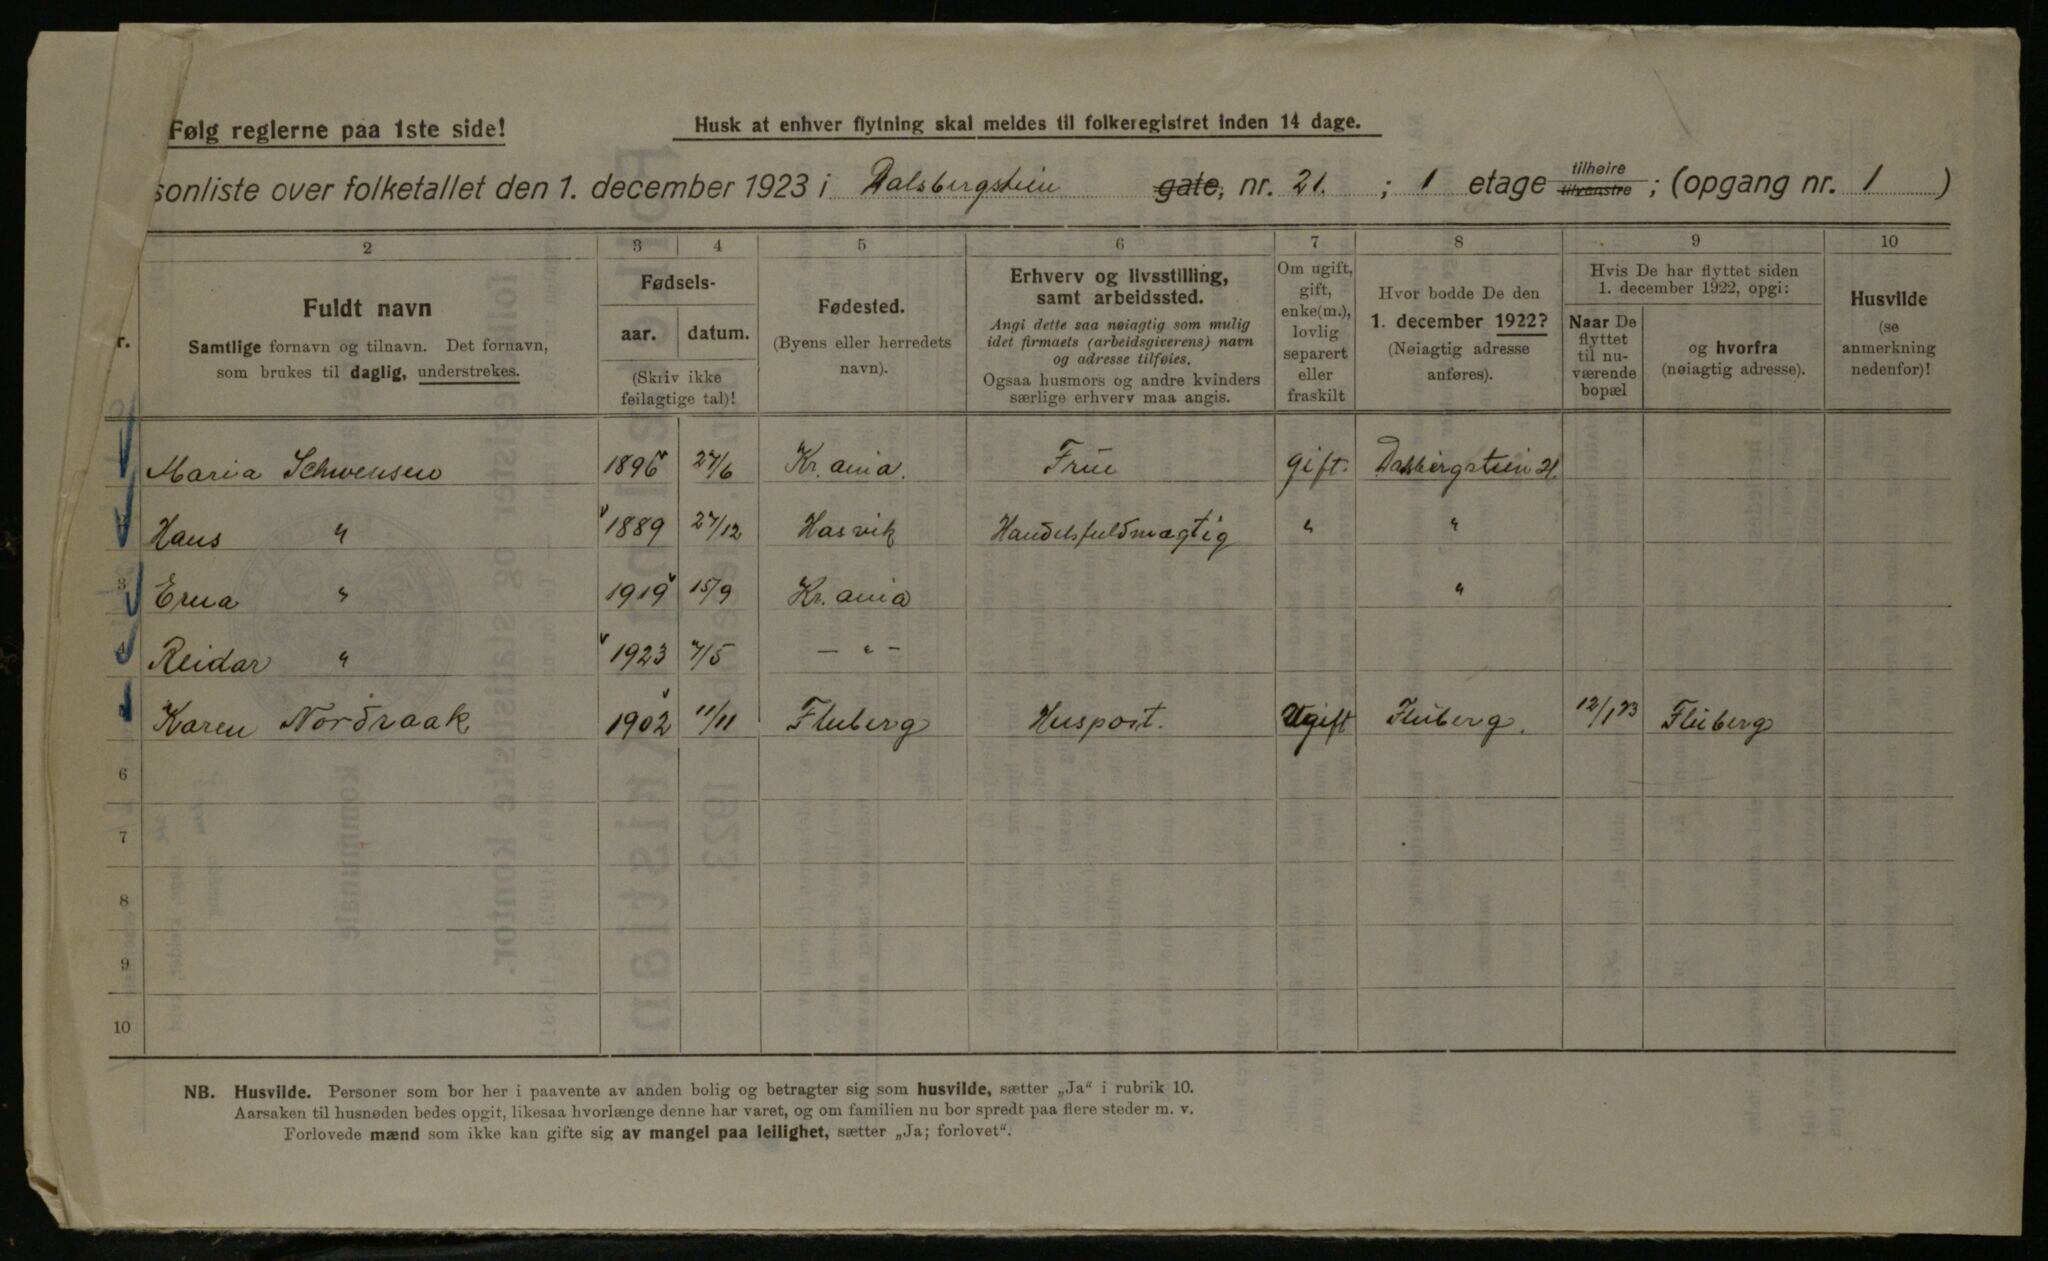 Følg reglerne paa 1ste side!
Husk at enhver flytning skal meldes til folkeregistret inden 14 dage.
sonliste over folketallet den 1. december 1923 i Dalsbergstien gate, nr. 21. ; 1 etage tilhøire tilvenstre ; (opgang nr. 1 )
2 3 4 5 6 7 8 9 10
r.
Fuldt navn
Samtlige fornavn og tilnavn. Det fornavn,
som brukes til daglig, understrekes.
Fødsels-
aar. datum.
(Skriv ikke
feilagtige tal)!
Fødested.
(Byens eller herredets
navn).
Erhverv og livsstilling,
samt arbeidssted.
Angi dette saa nøiagtig som mulig
idet firmaets (arbeidsgiverens) navn
og adresse tilføies.
Ogsaa husmors og andre kvinders
særlige erhverv maa angis.
Om ugift,
gift,
enke(m.),
lovlig
separert
eller
fraskilt
Hvor bodde De den
1. december 1922?
(Nøiagtig adresse
anføres).
Hvis De har flyttet siden
1. december 1922, opgi:
Naar De
flyttet
til nu-
værende
bopæl
og hvorfra
(nøiagtig adresse).
Husvilde
(se
anmerkning
nedenfor)!
Maria Schwensen 1896 27/6 Kr.ania. Frue gift. Dalsbergstien 21.
Hans " 1889 27/12 Hasvik Handelsfuldmægtig " "
3 Erna " 1919 15/9 Kr.ania "
4 Reidar " 1923 7/5 — " —
Karen Nordraak 1902 11/11 Fluberg Huspost. Ugift Fluberg. 12/1 23 Fluberg
6
7
8
9
10
NB. Husvilde. Personer som bor her i paavente av anden bolig og betragter sig som husvilde, sætter „Ja“ i rubrik 10.
Aarsaken til husnøden bedes opgit, likesaa hvorlænge denne har varet, og om familien nu bor spredt paa flere steder m. v.
Forlovede mænd som ikke kan gifte sig av mangel paa leilighet, sætter „Ja; forlovet“.